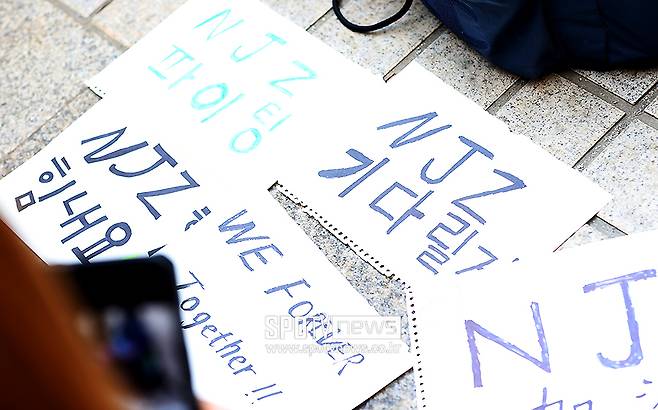 NJZ
파이팅
NJZ
기다릴게
NJZ
힘내요
WE
FOREVER
Together !!
SPOTVnews
www.spotvnews.co.kr
NJ